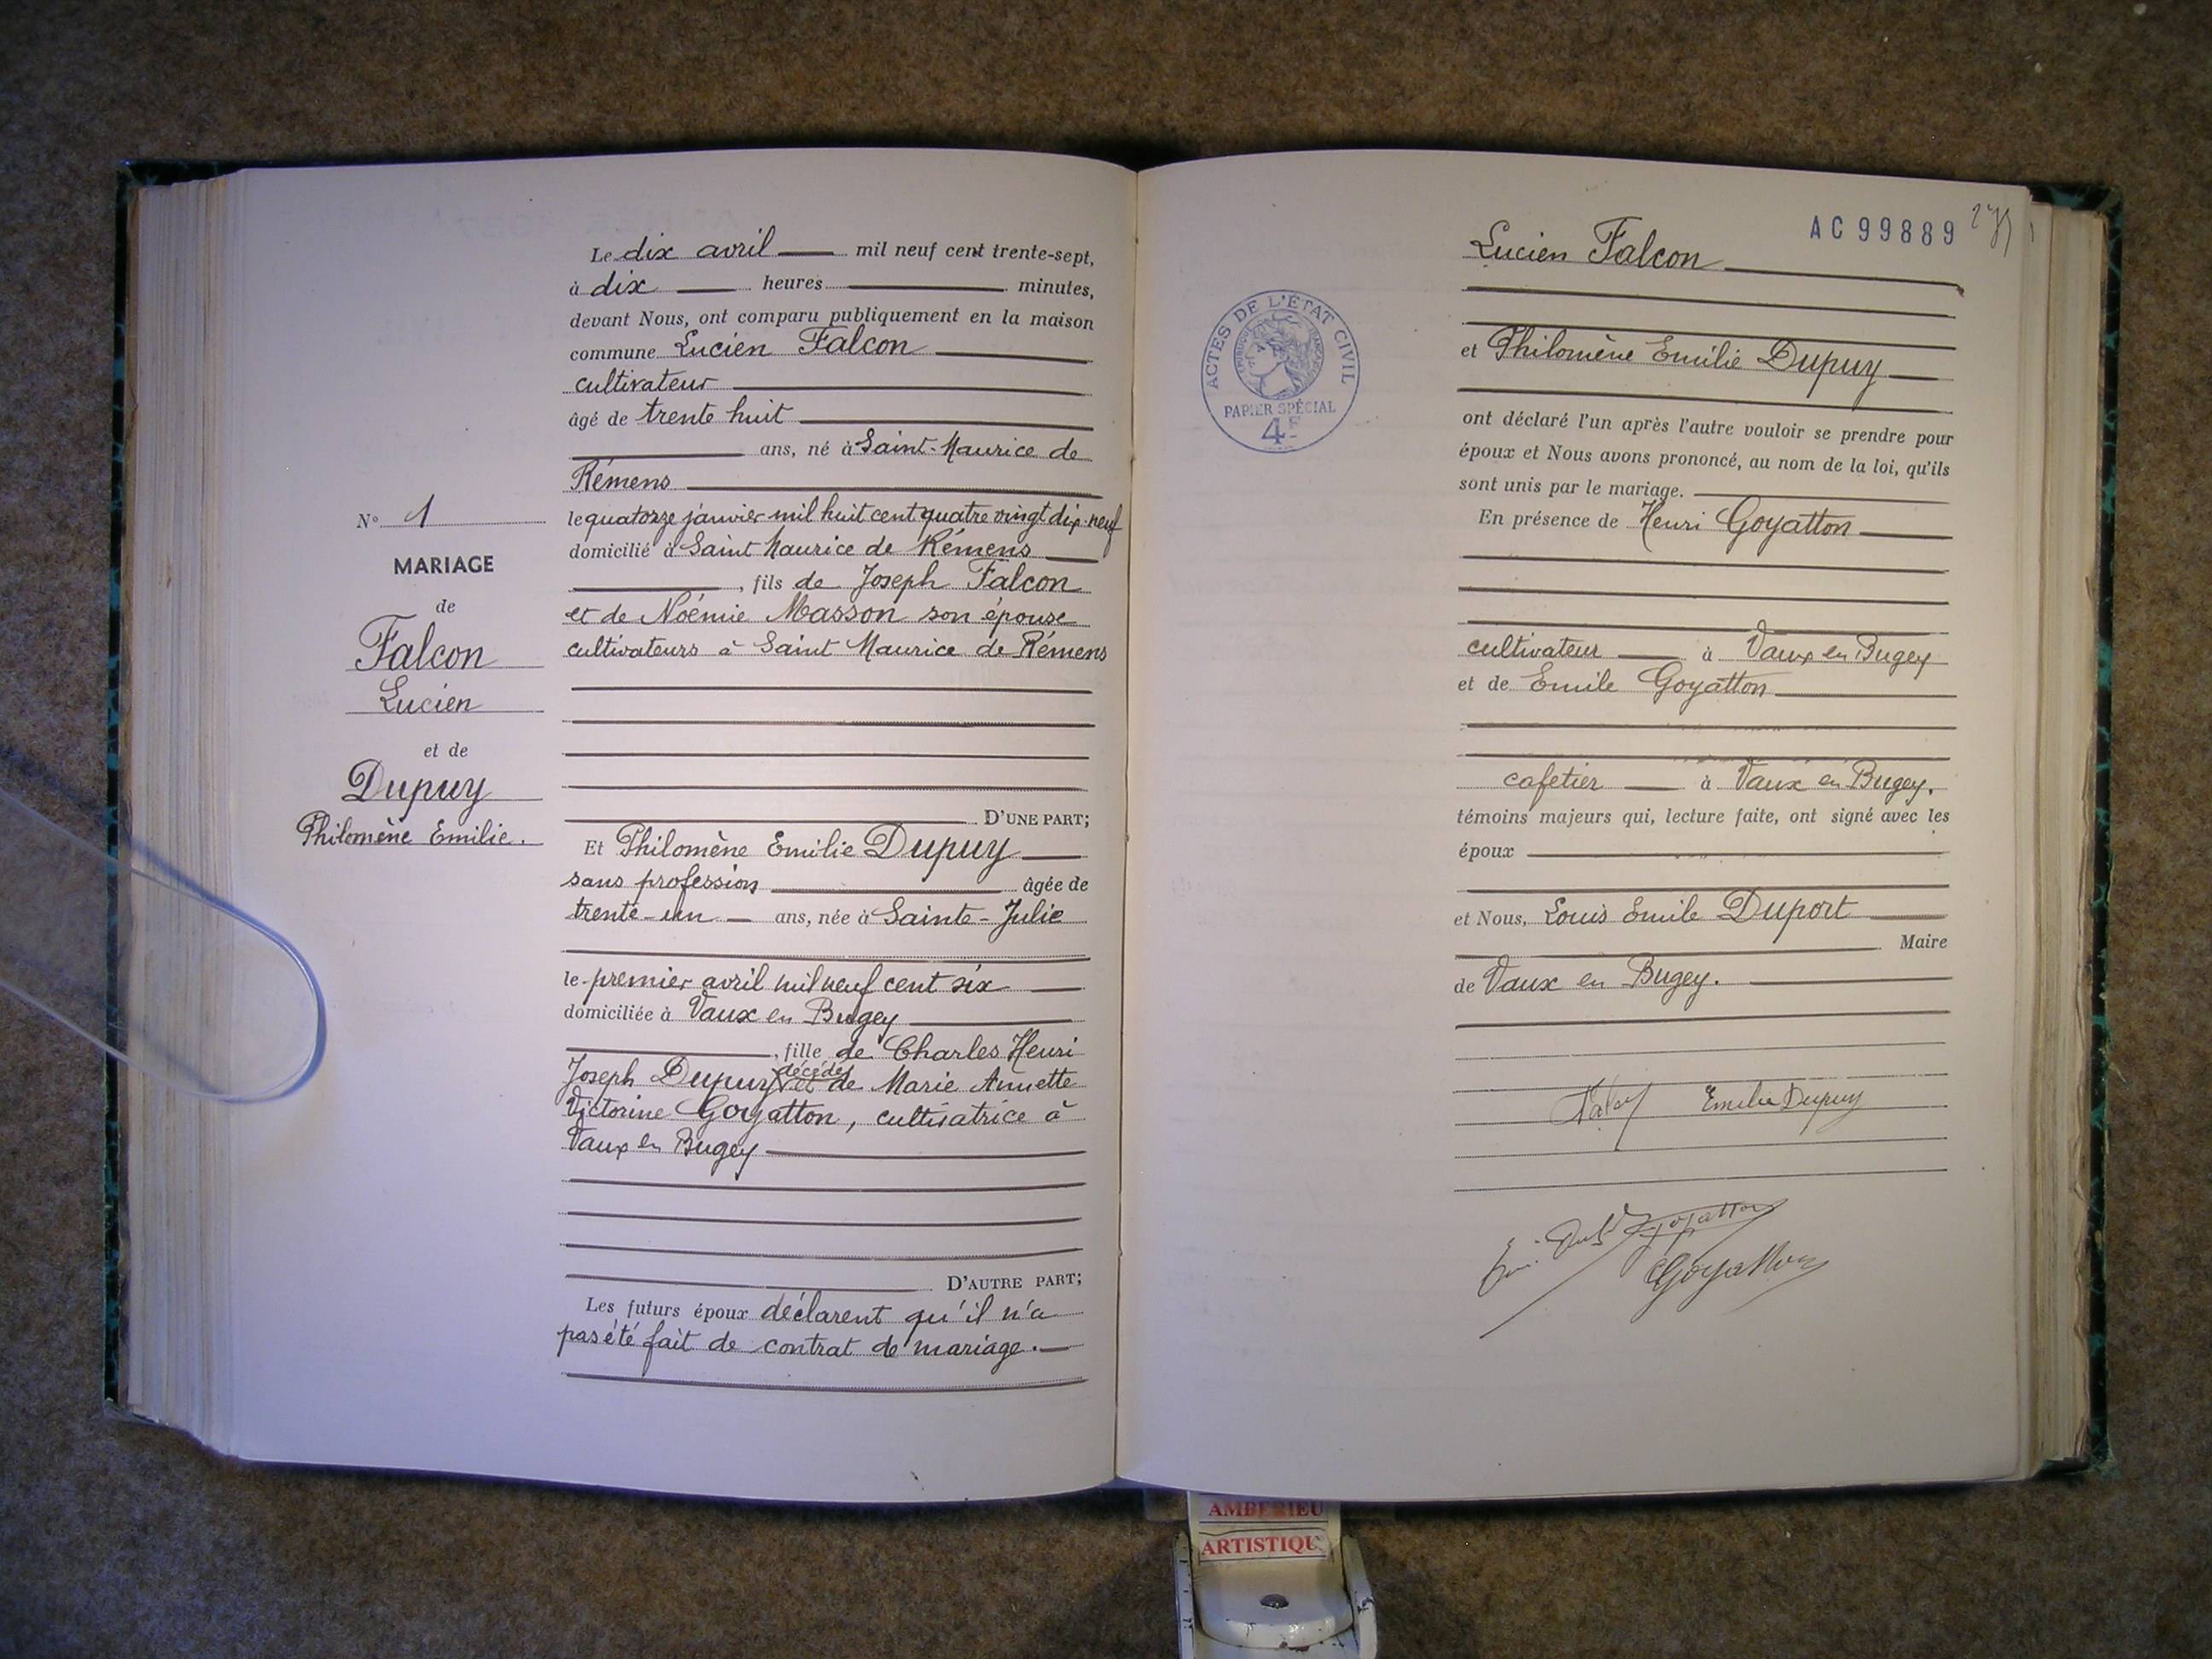 Le dix avril mil neuf cent trente-sept,
à dix heures minutes,
devant Nous, ont comparu publiquement en la maison
commune Lucien Falcon
cultivateur
âgé de trente huit
ans, né à Saint-Maurice de
Rémens
le quatorze janvier mil huit cent quatre vingt dix-neuf
domicilié à Saint Maurice de Rémens
, fils de Joseph Falcon
et de Noémie Masson son épouse
cultivateurs à Saint Maurice de Rémens
D'UNE PART;
Et Philomène Emilie Dupuy
sans profession âgée de
trente-un ans, née à Sainte-Julie
le premier avril mil neuf cent six
domiciliée à Vaux en Bugey
, fille de Charles Henri
Joseph Dupuy décédé et de Marie Annette
Victorine Goyatton, cultivatrice à
Vaux en Bugey
D'AUTRE PART;
Les futurs époux déclarent qu'il n'a
pas été fait de contrat de mariage.
N° 1
MARIAGE
de
Falcon
Lucien
et de
Dupuy
Philomène Emilie.
AC 99889
Lucien Falcon
et Philomène Emilie Dupuy
ont déclaré l'un après l'autre vouloir se prendre pour
époux et Nous avons prononcé, au nom de la loi, qu'ils
sont unis par le mariage.
En présence de Henri Goyatton
cultivateur à Vaux en Bugey
et de Emile Goyatton
cafetier à Vaux en Bugey.
témoins majeurs qui, lecture faite, ont signé avec les
époux
et Nous, Louis Emile Duport
Maire
de Vaux en Bugey.
Emilie Dupuy
Goyatton
Goyatton
ACTES DE L'ÉTAT CIVIL
RÉPUBLIQUE FRANÇAISE
PAPIER SPÉCIAL
4F
AMBERIEU
ARTISTIQU